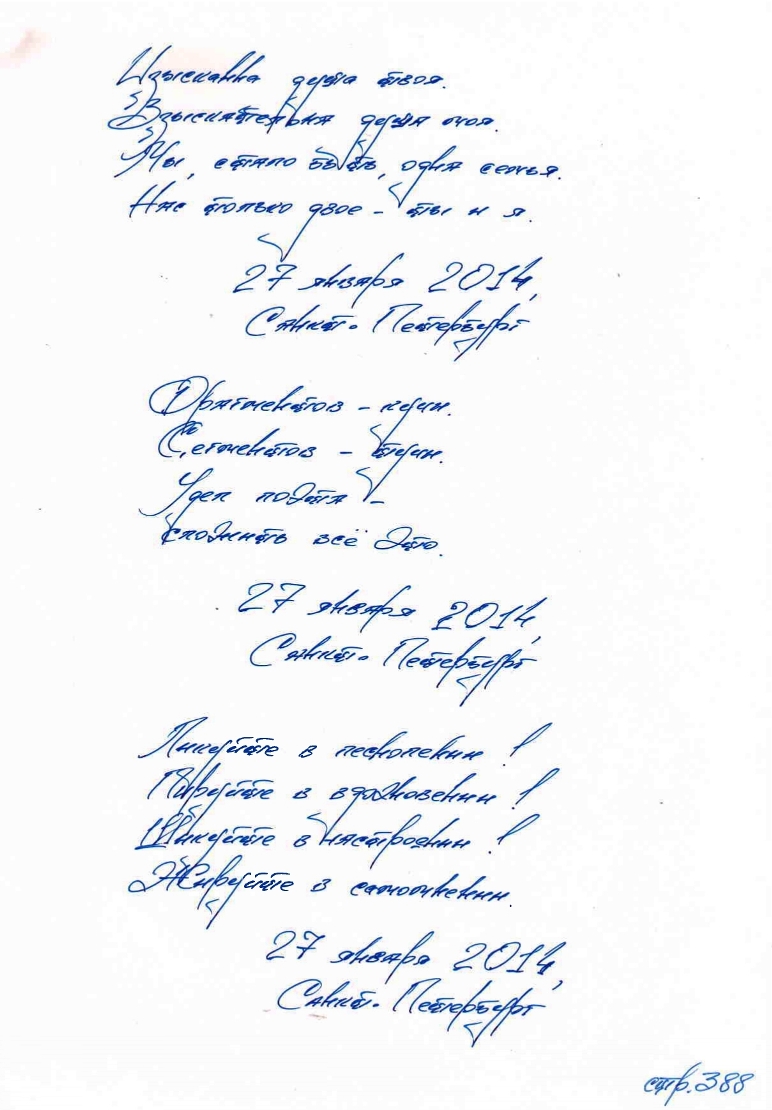 Изысканна душа твоя.
Взыскательна душа моя.
Мы, стало быть, одна семья.
Нас только двое - ты и я.
27 января 2014,
Санкт-Петербург
Фрагментов - куин.
Сегментов - туин.
Удел поэта -
сложить всё это.
27 января 2014,
Санкт-Петербург
Ликуйте в песнопении!
Пируйте в вдохновении!
Шикуйте в настроении!
Жируйте в самомнении.
27 января 2014,
Санкт-Петербург
стр. 388